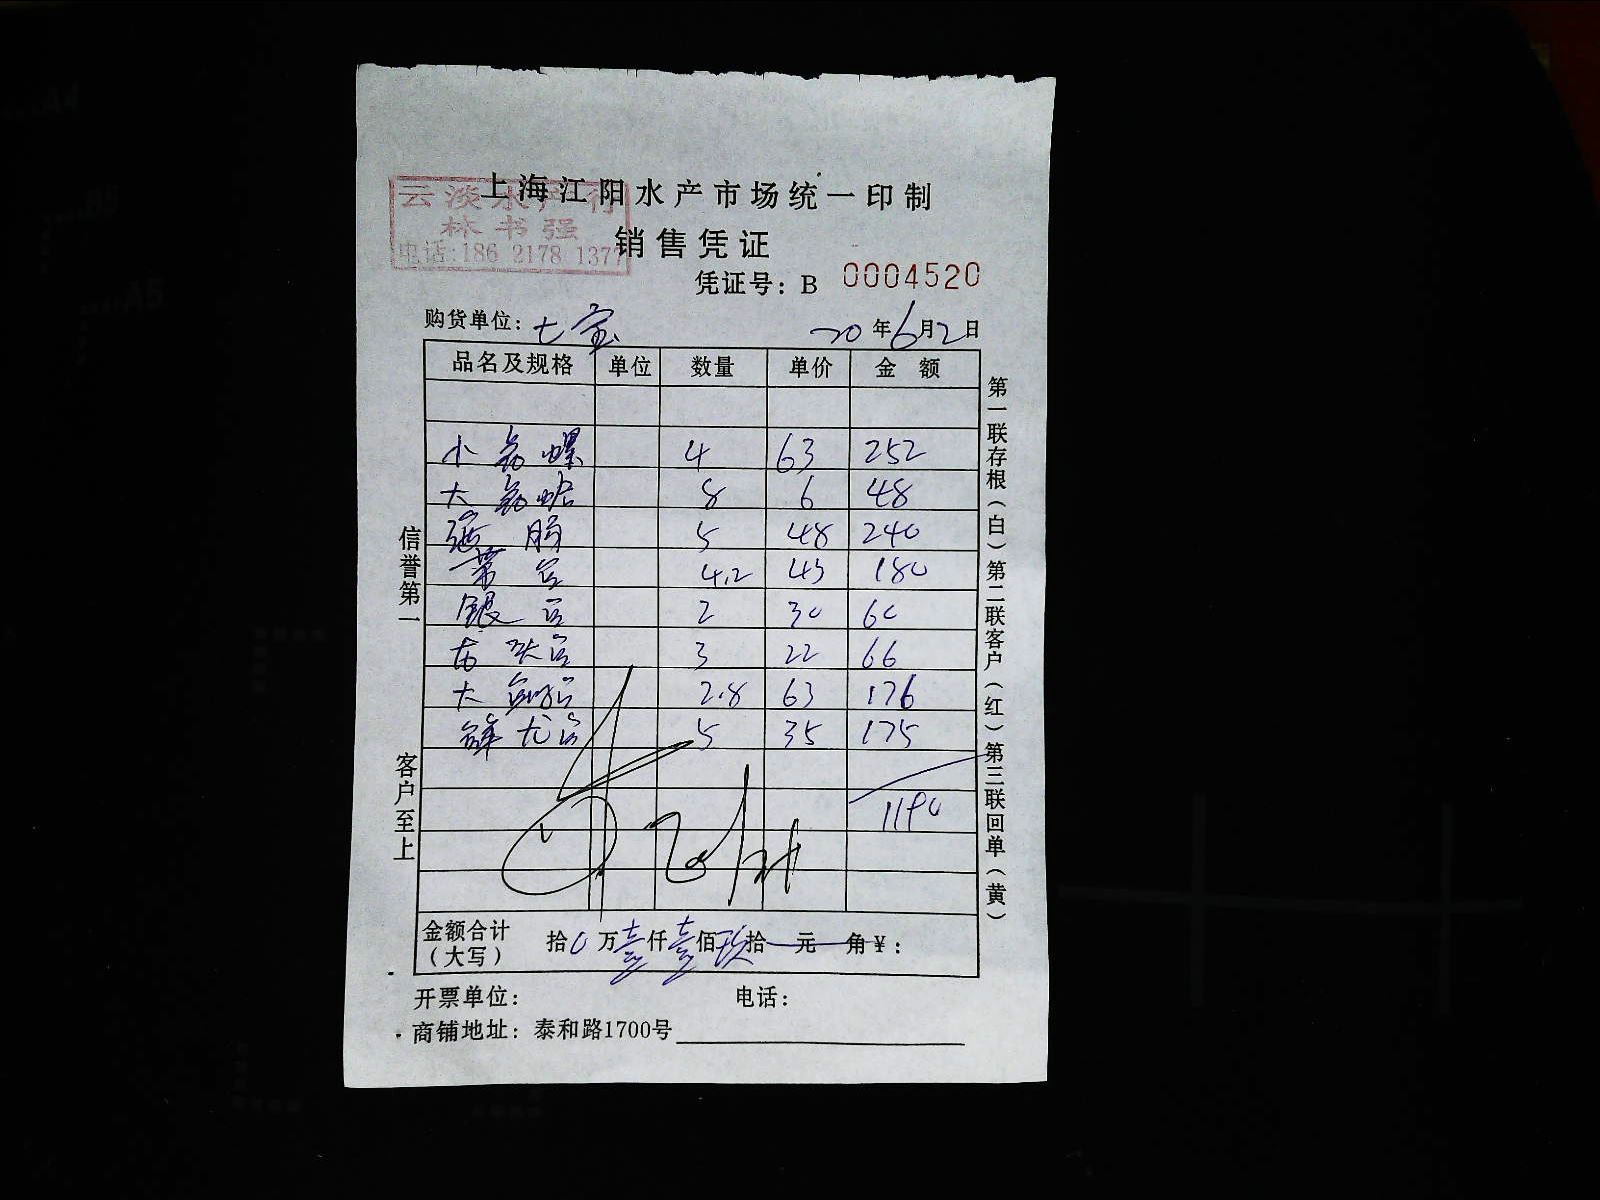 上海江阳水产市场统一印制
云淡水产行
林书强
电话:186 2178 1377
销售凭证
凭证号: B 0004520
购货单位: 七宝 20年6月2日
品名及规格 单位 数量 单价 金额
小 螺 4 63 252
大 8 6 48
5 48 240
4.2 43 180
银 2 30 60
3 22 66
大 2.8 63 176
鲜 5 35 175
1190
金额合计(大写) 拾0万壹仟壹佰玖拾元角¥:
开票单位: 电话:
商铺地址: 泰和路1700号
信誉第一 客户至上
第一联存根(白)第二联客户(红)第三联回单(黄)